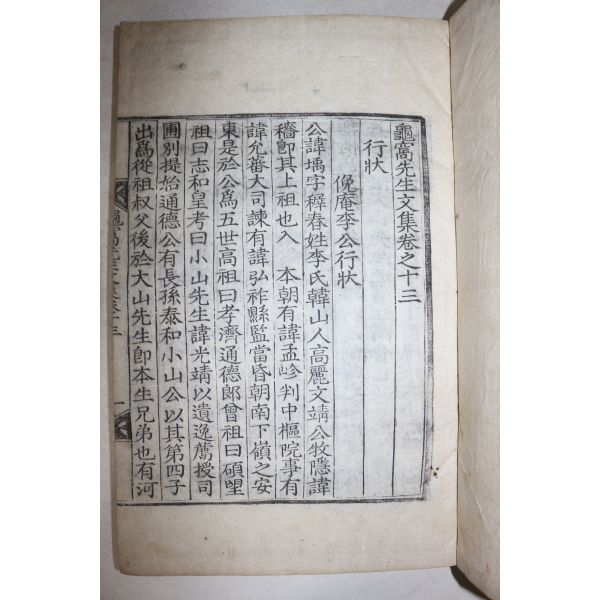 龜窩先生文集卷之十三
行狀
俛庵李公行狀
公諱㙖字穉春姓李氏韓山人高麗文靖公牧隱諱
穡卽其上祖也入 本朝有諱孟畛判中樞院事有
諱允蕃大司諫有諱弘祚縣監當昏朝南下嶺之安
東是於公爲五世高祖曰孝濟通德郞曾祖曰碩
祖曰志和皇考曰小山先生諱光靖以遺逸薦授司
圃別提始通德公有長孫泰和小山公以其第四子
出爲從祖叔父後於大山先生卽本生兄弟也有河
龜窩先生文集卷十三
一